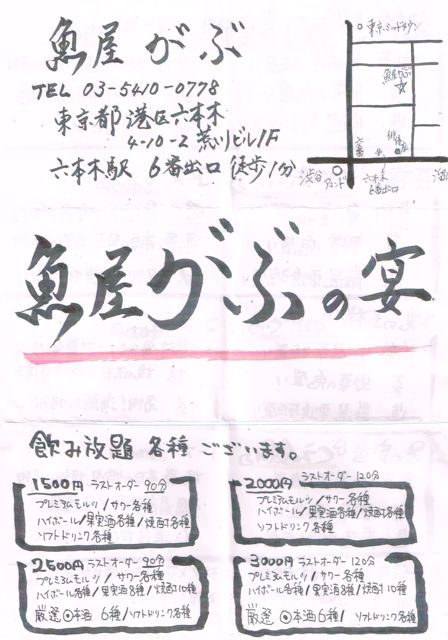 魚屋 がぶ
TEL 03-5410-0778
東京都 港区 六本木
4-10-2 荒川ビル1F
六本木駅 6番出口 徒歩1分
東京ミッドタウン
魚屋がぶ
渋谷
六本木
6番出口
魚屋がぶの宴
飲み放題 各種 ございます。
1500円 ラストオーダー 90分
プレミアムモルツ/サワー各種
ハイボール/果実酒各種/焼酎各種
ソフトドリンク各種
2000円 ラストオーダー 120分
プレミアムモルツ/サワー各種
ハイボール/果実酒各種/焼酎各種
ソフトドリンク各種
2500円 ラストオーダー 90分
プレミアムモルツ/サワー各種
ハイボール各種/果実酒8種/焼酎10種
厳選日本酒6種/ソフトドリンク各種
3000円 ラストオーダー 120分
プレミアムモルツ/サワー各種
ハイボール各種/果実酒8種/焼酎10種
厳選日本酒6種/ソフトドリンク各種